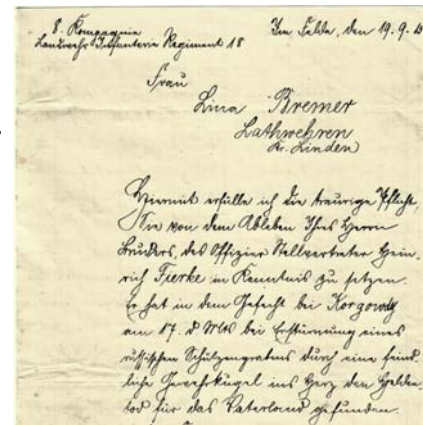 8. Kompagnie
Landwehr Infanterie Regiment 18
Im Felde, den 19. 9. 15
Frau
Lina Bremer
Lathwehren
Kr. Linden
Hiermit erfülle ich die traurige Pflicht,
Sie von dem Ableben Ihres Herrn
Bruders, des Offizier Stellvertreter Hein-
rich Fierke in Kenntnis zu setzen.
Er hat in dem Gefecht bei
am 17. d Mts bei Erstürmung eines
russischen Schützengrabens durch eine feind-
liche Gewehrkugel ins Herz den Helden-
tod für das Vaterland gefunden.